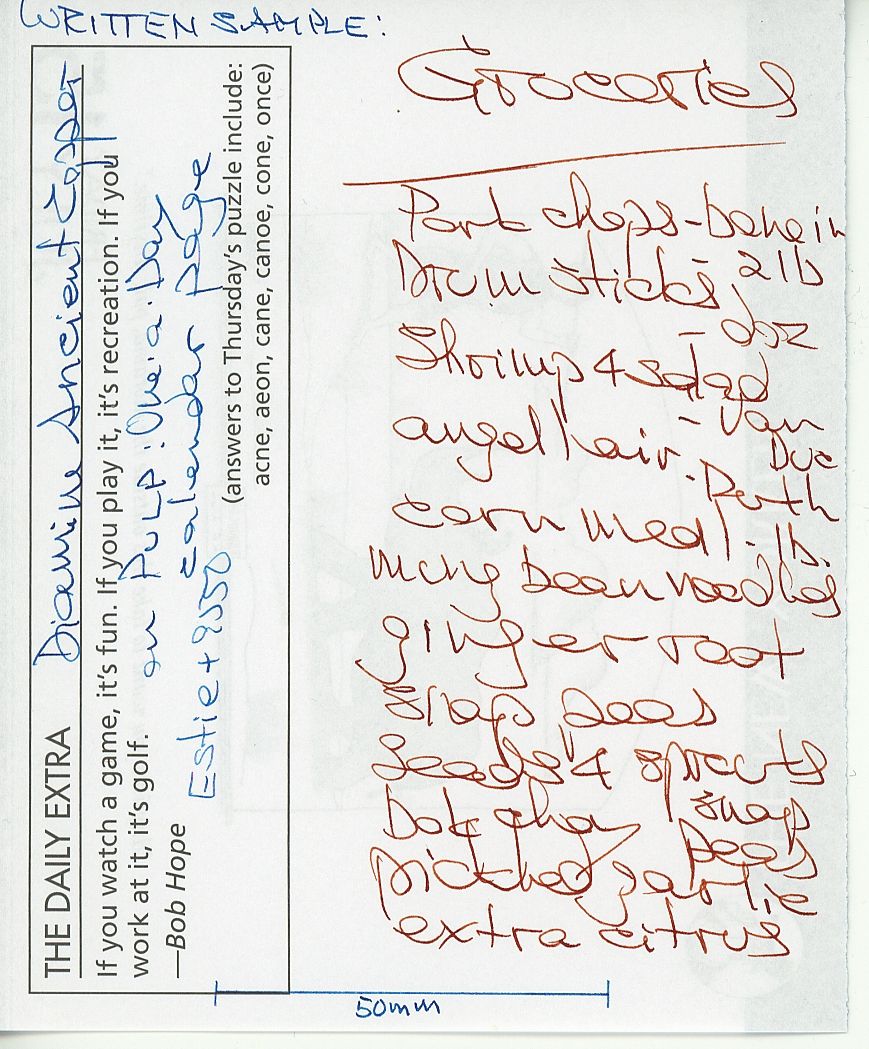 WRITTEN SAMPLE:
THE DAILY EXTRA
If you watch a game, it's fun. If you play it, it's recreation. If you
work at it, it's golf.
—Bob Hope
(answers to Thursday's puzzle include:
acne, aeon, cane, canoe, cone, once)
Diamine Ancient Copper
on PULP: One·a·Day
calendar page
Estie + 9550
Groceries
Pork chops - bone in
Drumsticks - 2 lb
Shrimp 4 salad - doz
angel hair - Van
Duc
corn meal - Perth
mung bean noodles - lb.
ginger root
snap peas
seeds 4 sprouts
Bok choy snap
peas
pickled garlic
extra citrus
50mm